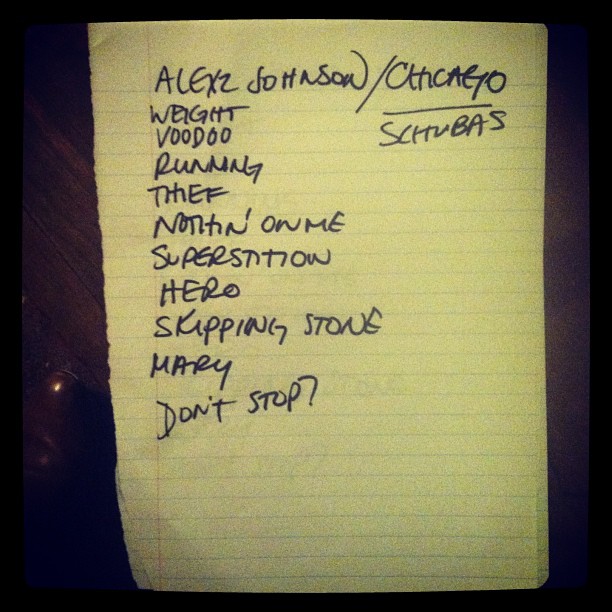 ALEXZ JOHNSON/CHICAGO
SCHUBAS
WEIGHT
VOODOO
RUNNING
THIEF
NOTHIN' ON ME
SUPERSTITION
HERO
SKIPPING STONE
MARY
DON'T STOP?